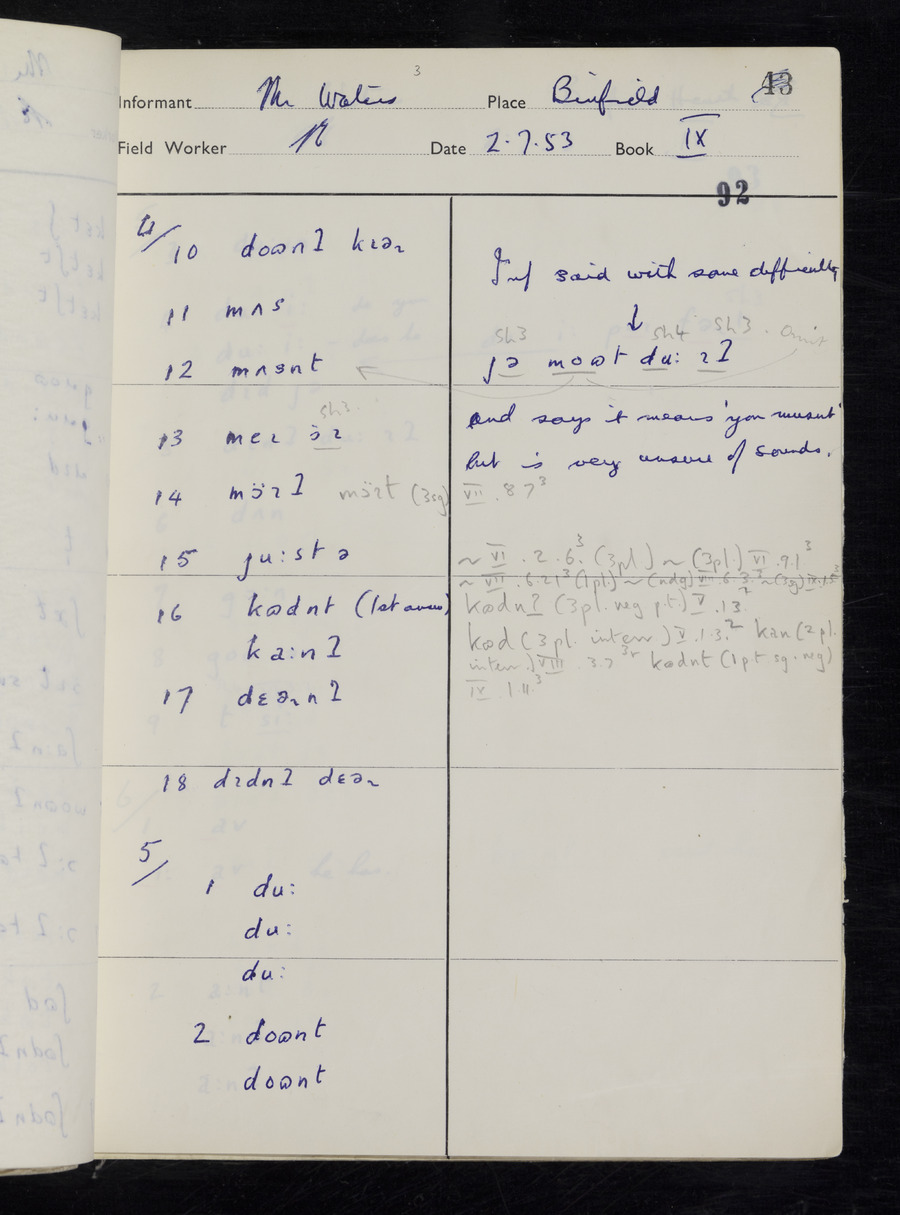 3
Informant Mr Waters Place Binfield 43
Field Worker Date 2.7.53 Book IX
92
4/
10 dɷənʔ kɪəɻ
11 mʌs
12 mʌsnt
13 meɪ
14 möɪʔ möɪt (3sg) VII.8.7³
15 ju:st ə
16 kɷdnt (1st answ)
ka:nʔ
17 dɛəɻnʔ
18 dɪdnʔ dɛəɻ
5/
1 du:
du:
du:
2 doɷnt
doɷnt
Inf said with some difficulty
↓
sh3 sh4 sh3. omit
jə moɷt du: ɪʔ
and says it means 'you musnt'
but is very unsure of sounds.
~ VI.2.6³ (3pl) ~ (3pl) VI.9.1³
kɷdnʔ (3pl. neg p.t.) V.13²
kɷd (3pl. interr) V.1.3.² kan (2pl.
interr.) VIII.3.2³ʳ kɷdnt (1pt sg. neg)
IV.1.11.³